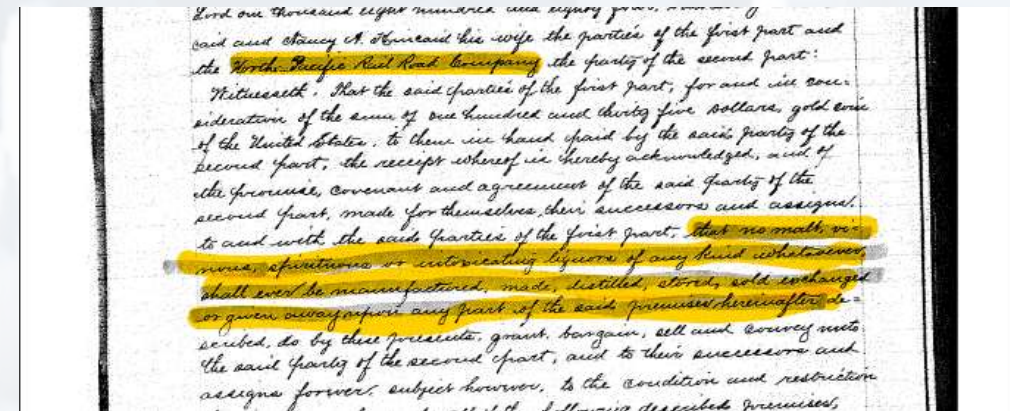 Lord one thousand eight hundred and eighty four,
caid and Nancy A. Kincaid his wife the parties of the first part and
the North Pacific Rail Road Company the party of the second part:
Witnesseth. That the said parties of the first part, for and in con-
sideration of the sum of one hundred and thirty five Dollars, gold coin
of the United States, to them in hand paid by the said party of the
second part, the receipt whereof is hereby acknowledged, and of
the promise, covenant and agreement of the said party of the
second part, made for themselves, their successors and assigns,
to and with the said parties of the first part, that no malt, vi-
nous, spirituous or intoxicating liquors of any kind whatsoever,
shall ever be manufactured, made, distilled, stored, sold exchanged
or given away upon any part of the said premises hereinafter de-
scribed, do by these presents, grant, bargain, sell and convey unto
the said party of the second part, and to their successors and
assigns forever, subject however, to the condition and restriction
the following described premises,